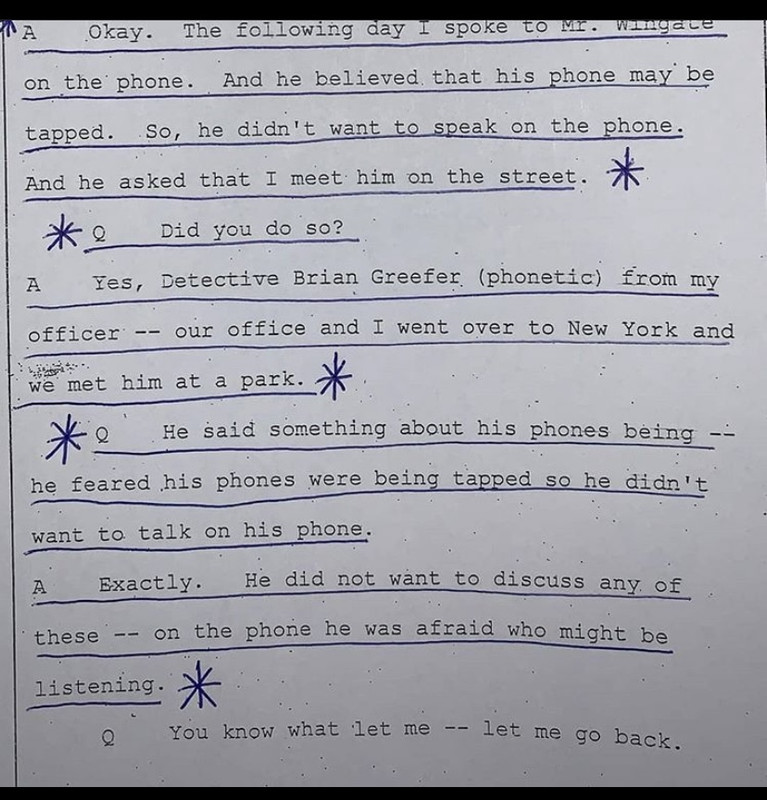 A Okay. The following day I spoke to Mr. Wingate
on the phone. And he believed that his phone may be
tapped. So, he didn't want to speak on the phone.
And he asked that I meet him on the street.
Q Did you do so?
A Yes, Detective Brian Greefer (phonetic) from my
officer -- our office and I went over to New York and
we met him at a park.
Q He said something about his phones being --
he feared his phones were being tapped so he didn't
want to talk on his phone.
A Exactly. He did not want to discuss any of
these -- on the phone he was afraid who might be
listening.
Q You know what let me -- let me go back.